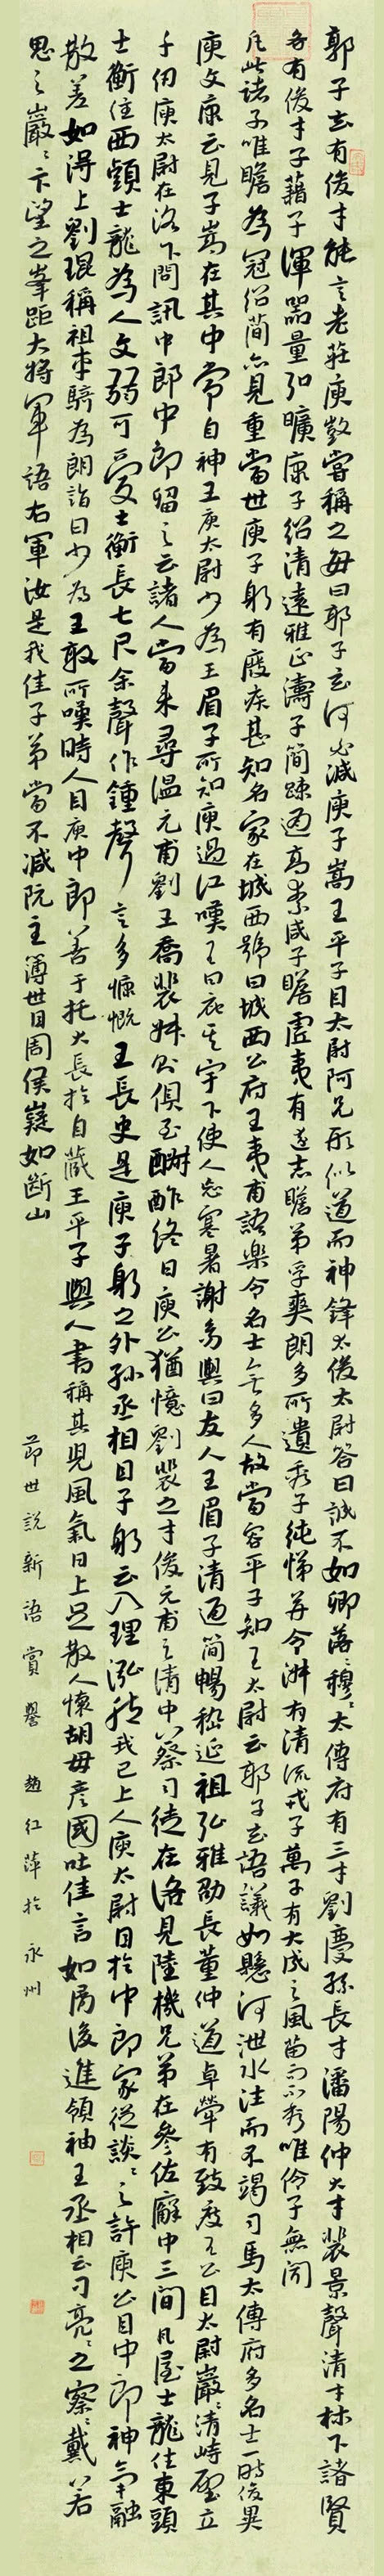 郭子玄有俊才能言老莊庾敳嘗稱之每曰郭子玄何必減庾子嵩王平子目太尉阿兄形似道而神鋒太俊太尉答曰誠不如卿落落穆穆太傅府有三才劉慶孫長才潘陽仲大才裴景聲清才林下諸賢
各有俊才子籍子渾器量弘曠康子紹清遠雅正濤子簡疎通高素咸子瞻虛夷有遠志瞻弟孚爽朗多所遺秀子純悌并令淑有清流戎子萬子有大成之風苗而不秀唯伶子無聞
凡此諸子唯瞻為冠紹簡亦見重當世庾子躬有廢疾甚知名家在城西號曰城西公府王夷甫語樂令名士無多人故當容平子知王太尉云郭子玄語議如懸河泄水注而不竭司馬太傅府多名士一時俊異
庾文康云見子嵩在其中常自神王庾太尉少為王眉子所知庾過江嘆王曰庇其宇下使人忘寒暑謝幼輿曰友人王眉子清通簡暢嵇延祖弘雅劭長董仲道卓犖有致度王公目太尉巖巖清峙壁立
千仞庾太尉在洛下問訊中郎中郎留之云諸人當來尋溫元甫劉王喬裴叔則俱至酬酢終日庾公猶憶劉裴之才俊元甫之清中蔡司徒在洛見陸機兄弟在參佐廨中三間瓦屋士龍住東頭
士衡住西頭士龍為人文弱可愛士衡長七尺余聲作鍾聲言多慷慨王長史是庾子躬之外孫丞相目子躬云入理泓然我已上人庾太尉目於中郎家從談談之許庾公目中郎神氣融
散差如得上劉琨稱祖車騎為朗詣曰少為王敦所嘆時人目庾中郎善于托大長於自藏王平子與人書稱其兒風氣日上足散人懷胡毋彥國吐佳言如屑後進領袖王丞相云刁亮之察察戴若
思之巖巖卞望之峯距大將軍語右軍汝是我佳子弟當不減阮主簿世目周侯嶷如斷山
節世說新語賞譽 趙紅萍於永州